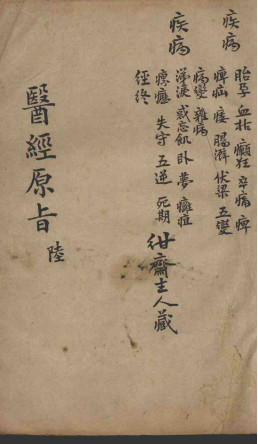 疾病
胎孕 血枯 癲狂 卒痛 痺
疝 痿 腸澼 伏梁 五變
疾病
病變 雜病
涕淚 或忘飢 臥 夢 癰疽
瘰癧 失守 五逆 死期
經終
紺齋主人藏
醫經原旨 陸